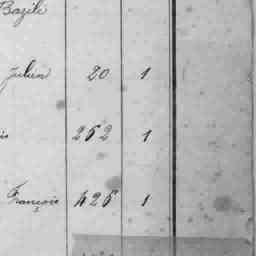 Bazile
Julien 20 1
is 262 1
François 426 1